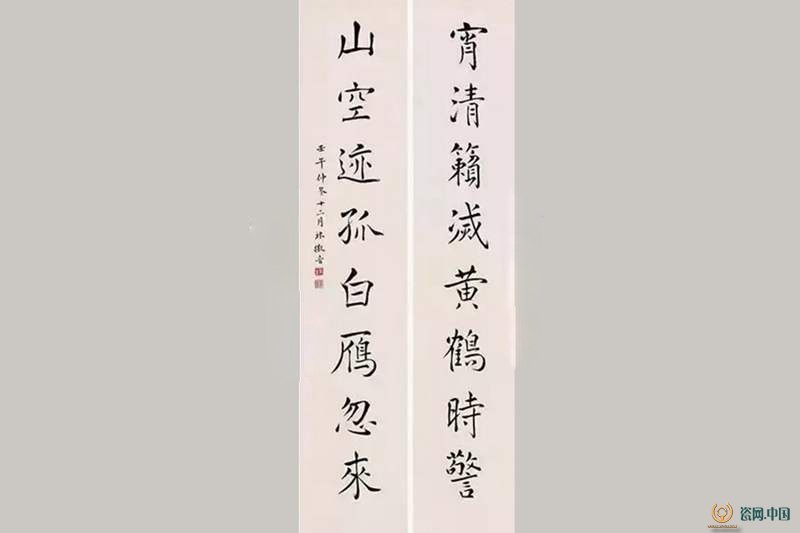 宵清籟滅黄鶴時警
山空迹孤白鴈忽來
壬午仲冬十二月林徽音
瓷网.中国